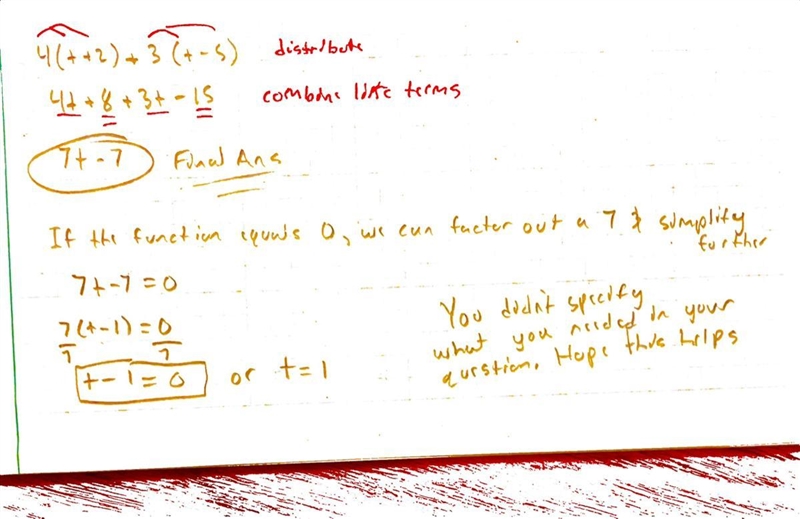 4(t+2)+3(t-5) distribute
4t+8+3t-15 combine like terms
7t-7 Final Ans
If the function equals 0, we can factor out a 7 & simplify further
7t-7=0
7(t-1)=0
7 7
t-1=0 or t=1
You didn't specify
what you needed in your
question. Hope this helps